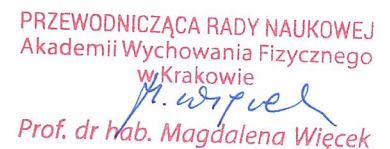 PRZEWODNICZĄCA RADY NAUKOWEJ
Akademii Wychowania Fizycznego
w Krakowie
M. Więcek
Prof. dr hab. Magdalena Więcek